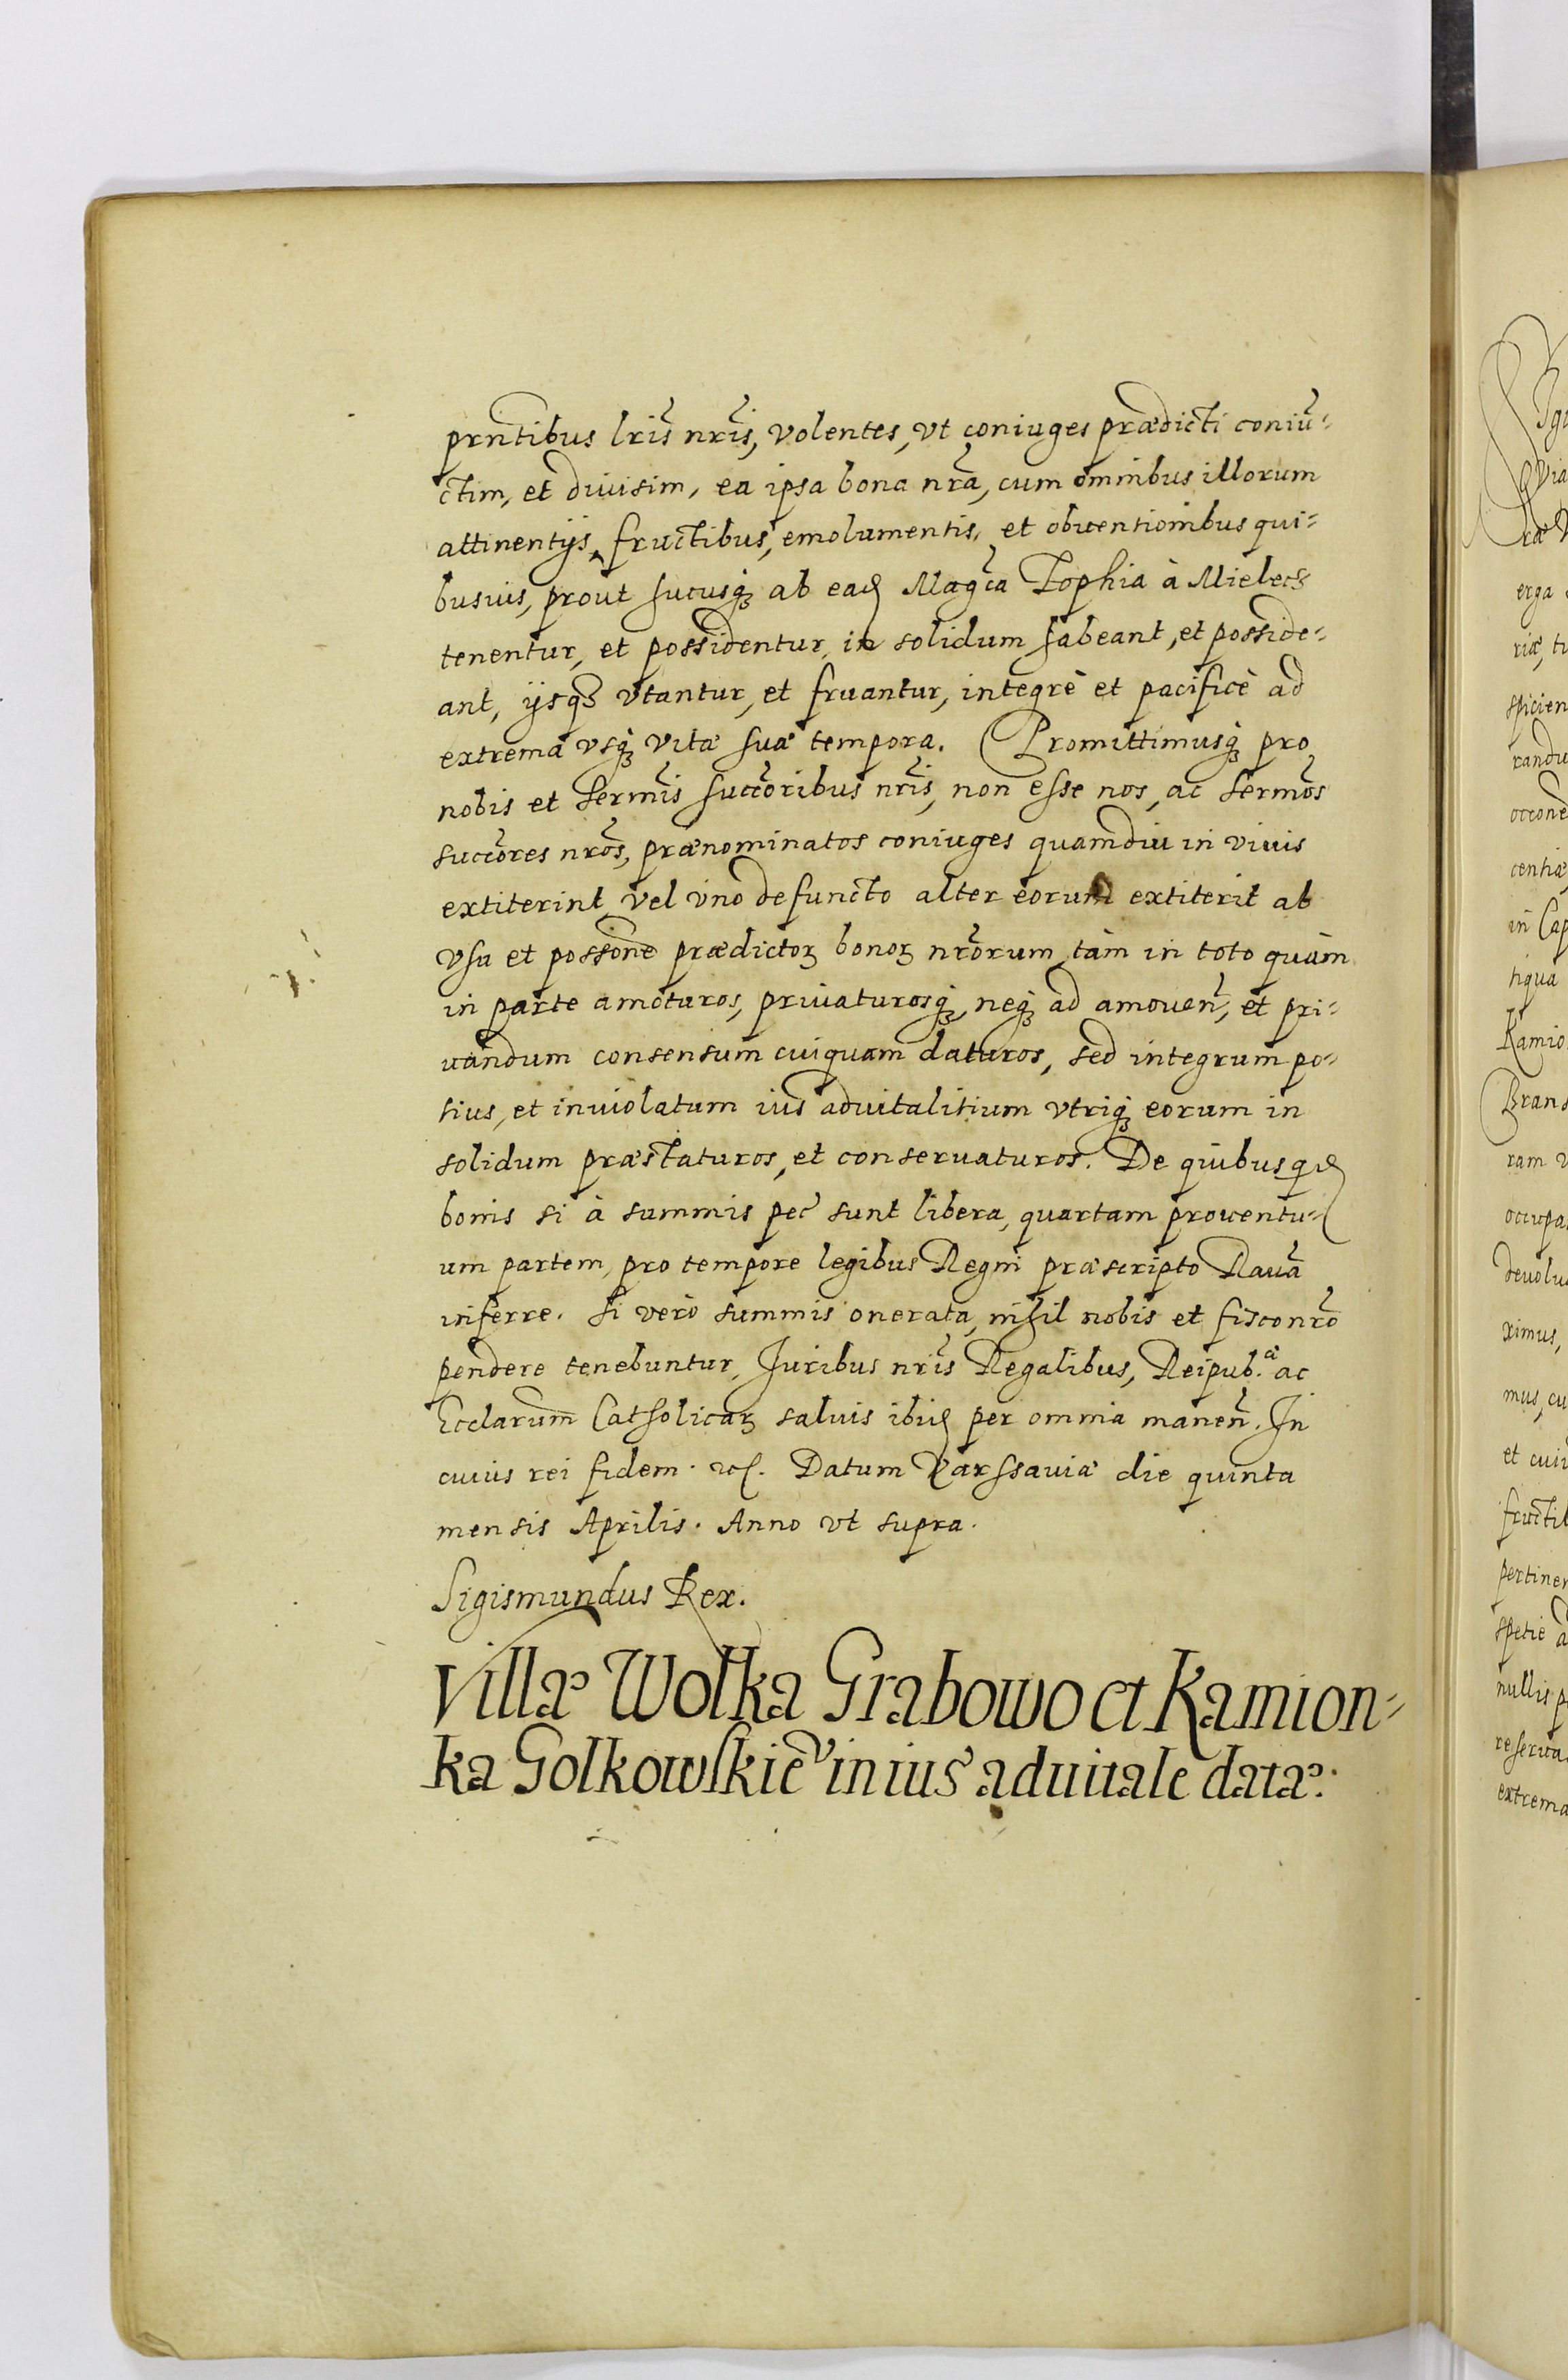 prntibus lris nris, volentes, vt coniuges prædicti coniũ-
ctim, et diuisim, ea ipsa bona nra, cum omnibus illorum
attinentijs, fructibus, emolumentis, et obuentionibus qui-
busuis, prout hucusq₃ ab ead Magca Zophia à Mielecz
tenentur, et possidentur, in solidum habeant, et posside-
ant, ijsq₃ vtantur, et fruantur, integrè et pacificè ad
extrema vsq₃ vitæ suæ tempora. Promittimusq₃ pro
nobis et sermis succoribus nris, non esse nos, ac sermos
succores nros, prænominatos coniuges quamdiu in viuis
extiterint, vel vno defuncto alter eorum extiterit ab
vsu et possone prædictoꝝ bonoꝝ nrorum, tàm in toto quàm
in parte amoturos, priuaturosq₃, neq₃ ad amouen, et pri-
uandum consensum cuiquam daturos, sed integrum po-
tius, et inuiolatum ius aduitalitium vtriq₃ eorum in
solidum præstaturos, et conseruaturos. De quibus qd
bonis si à summis pec sunt libera, quartam prouentu-
um partem, pro tempore legibus Regni præscripto Rauã
inferre. Si verò summis onerata, nihil nobis et fisco nro
pendere tenebuntur, Juribus nris Regalibus, Reipub.ᵃ ac
Ecclarum Catholicaꝝ saluis ibid per omnia manen. In
cuius rei fidem. etc. Datum Varssauiæ die quinta
mensis Aprilis. Anno vt supra.
Sigismundus Rex.
Villæ Wolka Grabowo et Kamion-
ka Golkowskie in ius aduitale datæ.
erga
Kamio
mus, cu
extrema